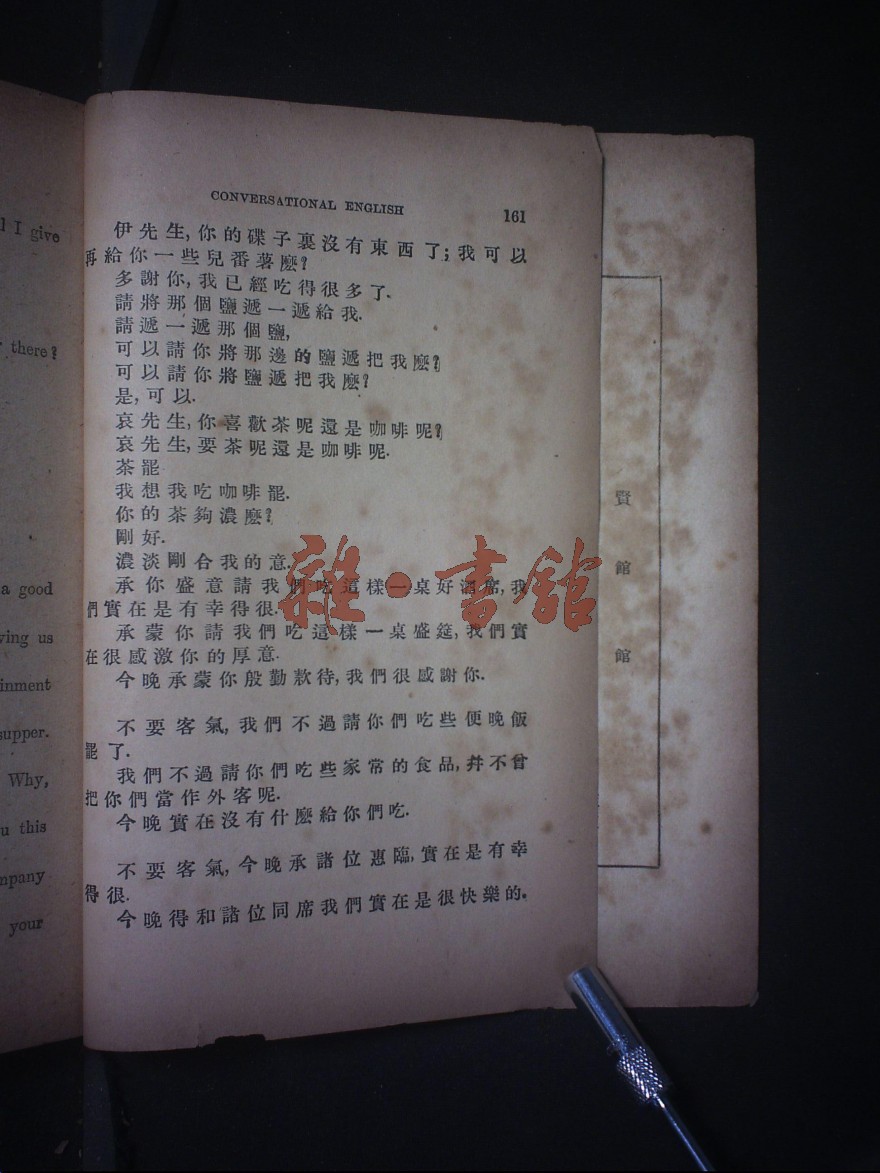 l I give
there?
a good
ving us
inment
supper.
Why,
u this
mpany
your
CONVERSATIONAL ENGLISH
161
伊先生,你的碟子裏沒有東西了;我可以
再給你一些兒番薯麼?
多謝你,我已經吃得很多了.
請將那個鹽遞一遞給我.
請遞一遞那個鹽,
可以請你將那邊的鹽遞把我麼?
可以請你將鹽遞把我麼?
是,可以.
哀先生,你喜歡茶呢還是咖啡呢?
哀先生,要茶呢還是咖啡呢.
茶罷
我想我吃咖啡罷.
你的茶夠濃麼?
剛好.
濃淡剛合我的意.
承你盛意請我們吃這樣一桌好酒席,我
們實在是有幸得很.
承蒙你請我們吃這樣一桌盛筵,我們實
在很感激你的厚意.
今晚承蒙你殷勤欵待,我們很感謝你.
不要客氣,我們不過請你們吃些便晚飯
罷了.
我們不過請你們吃些家常的食品,并不曾
把你們當作外客呢.
今晚實在沒有什麼給你們吃.
不要客氣,今晚承諸位惠臨,實在是有幸
得很.
今晚得和諸位同席我們實在是很快樂的.
賢
館
館
雜·書館